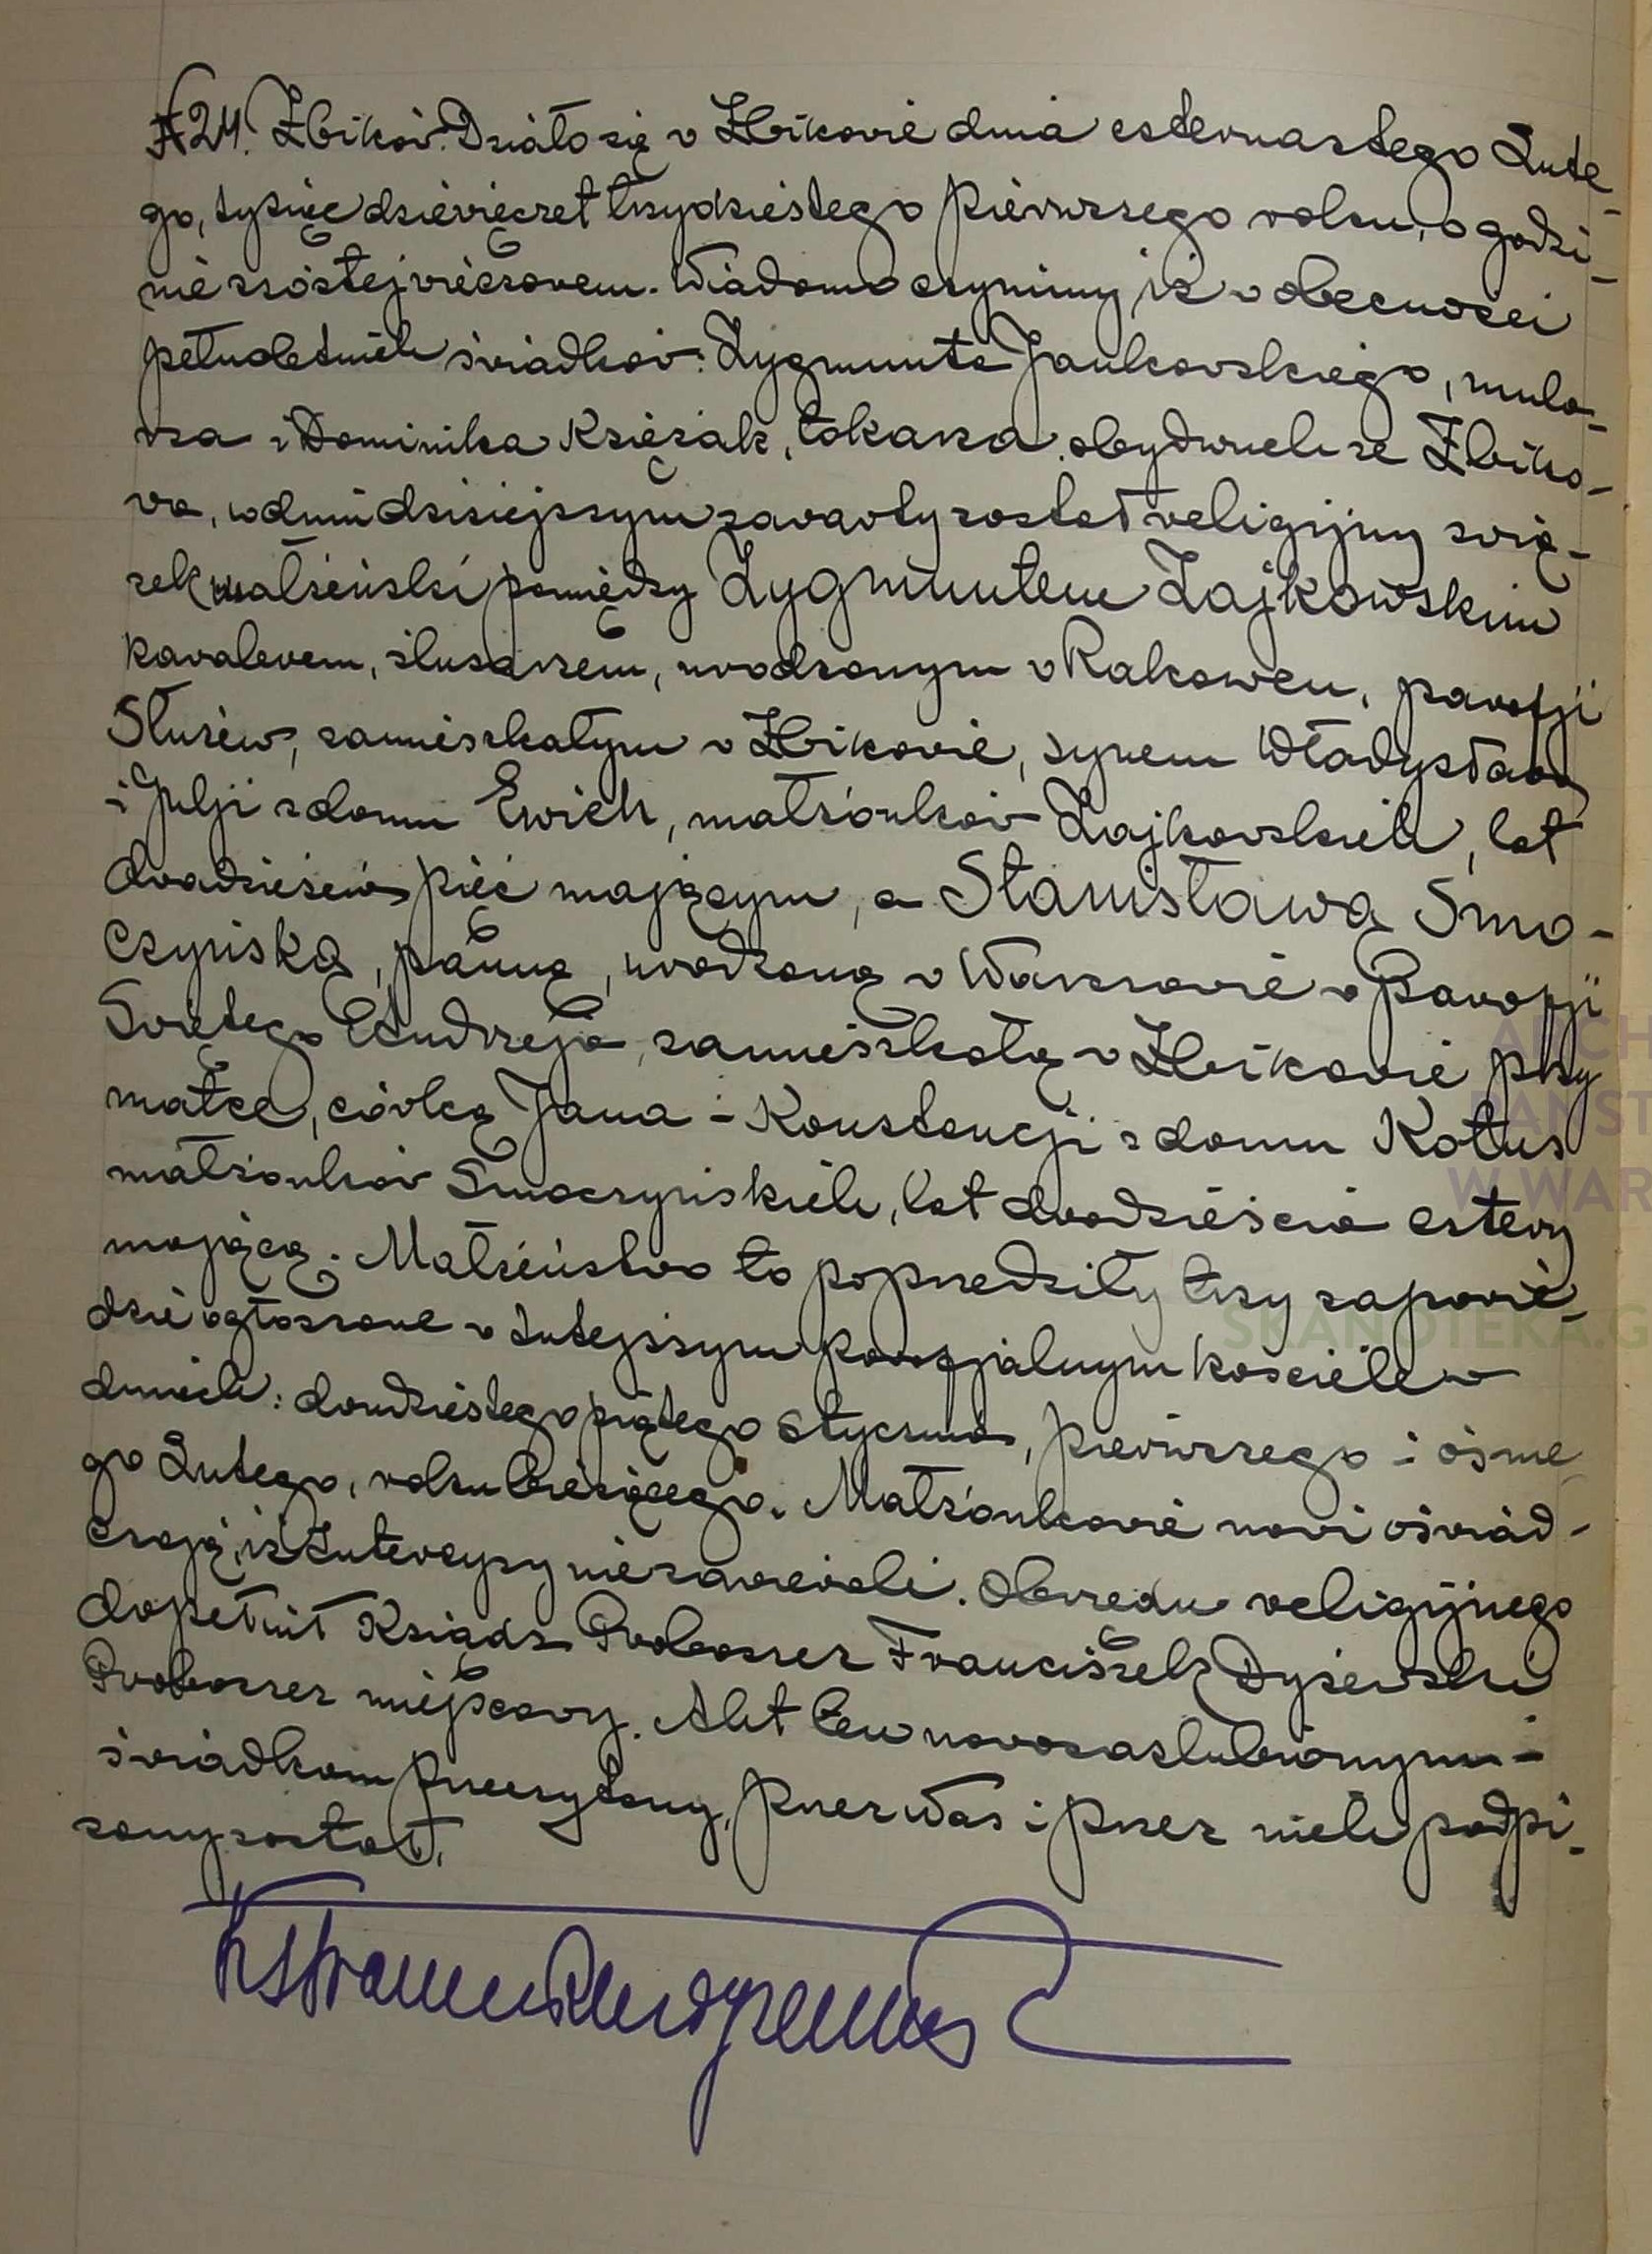 № 24. Żbików. Działo się w Żbikowie dnia czternastego Lute-
go, tysiąc dziewięćset trzydziestego pierwszego roku, o godzi-
nie szóstej wieczorem. Wiadomo czynimy, iż w obecności
pełnoletnich świadków: Zygmunta Jankowskiego, mula-
rza i Dominika Księżak, tokarza, obydwuch ze Żbiko-
wa, w dniu dzisiejszym zawarty został religijny zwią-
zek małżeński pomiędzy Zygmuntem Zajkowskim
kawalerem, ślusarzem, urodzonym w Rakowcu, parafji
Służew, zamieszkałym w Żbikowie, synem Władysława
i Julji z domu Ewich, małżonków Zajkowskich, lat
dwadzieścia pięć mającym, a Stanisławą Smo-
czyńską, panną, urodzoną w Warszawie w Parafji
Świętego Andrzeja, zamieszkałą w Żbikowie przy
matce, córką Jana i Konstancji z domu Kotus
małżonków Smoczyńskich, lat dwadzieścia cztery
mającą. Małżeństwo to poprzedziły trzy zapowie-
dzie ogłoszone w tutejszym parafjalnym kościele w
dniach: dwudziestego piątego Stycznia, pierwszego i ósme-
go Lutego, roku bieżącego. Małżonkowie nowi oświad-
czają, iż Intercyzy nie zawierali. Obrzędu religijnego
dopełnił Ksiądz Proboszcz Franciszek Dyżewski
Proboszcz miejscowy. Akt ten nowozaślubionym i
świadkom przeczytany, przez Nas i przez nich podpi-
sany został.
ARCH
PAŃST
W WAR
SKANOTEKA.G